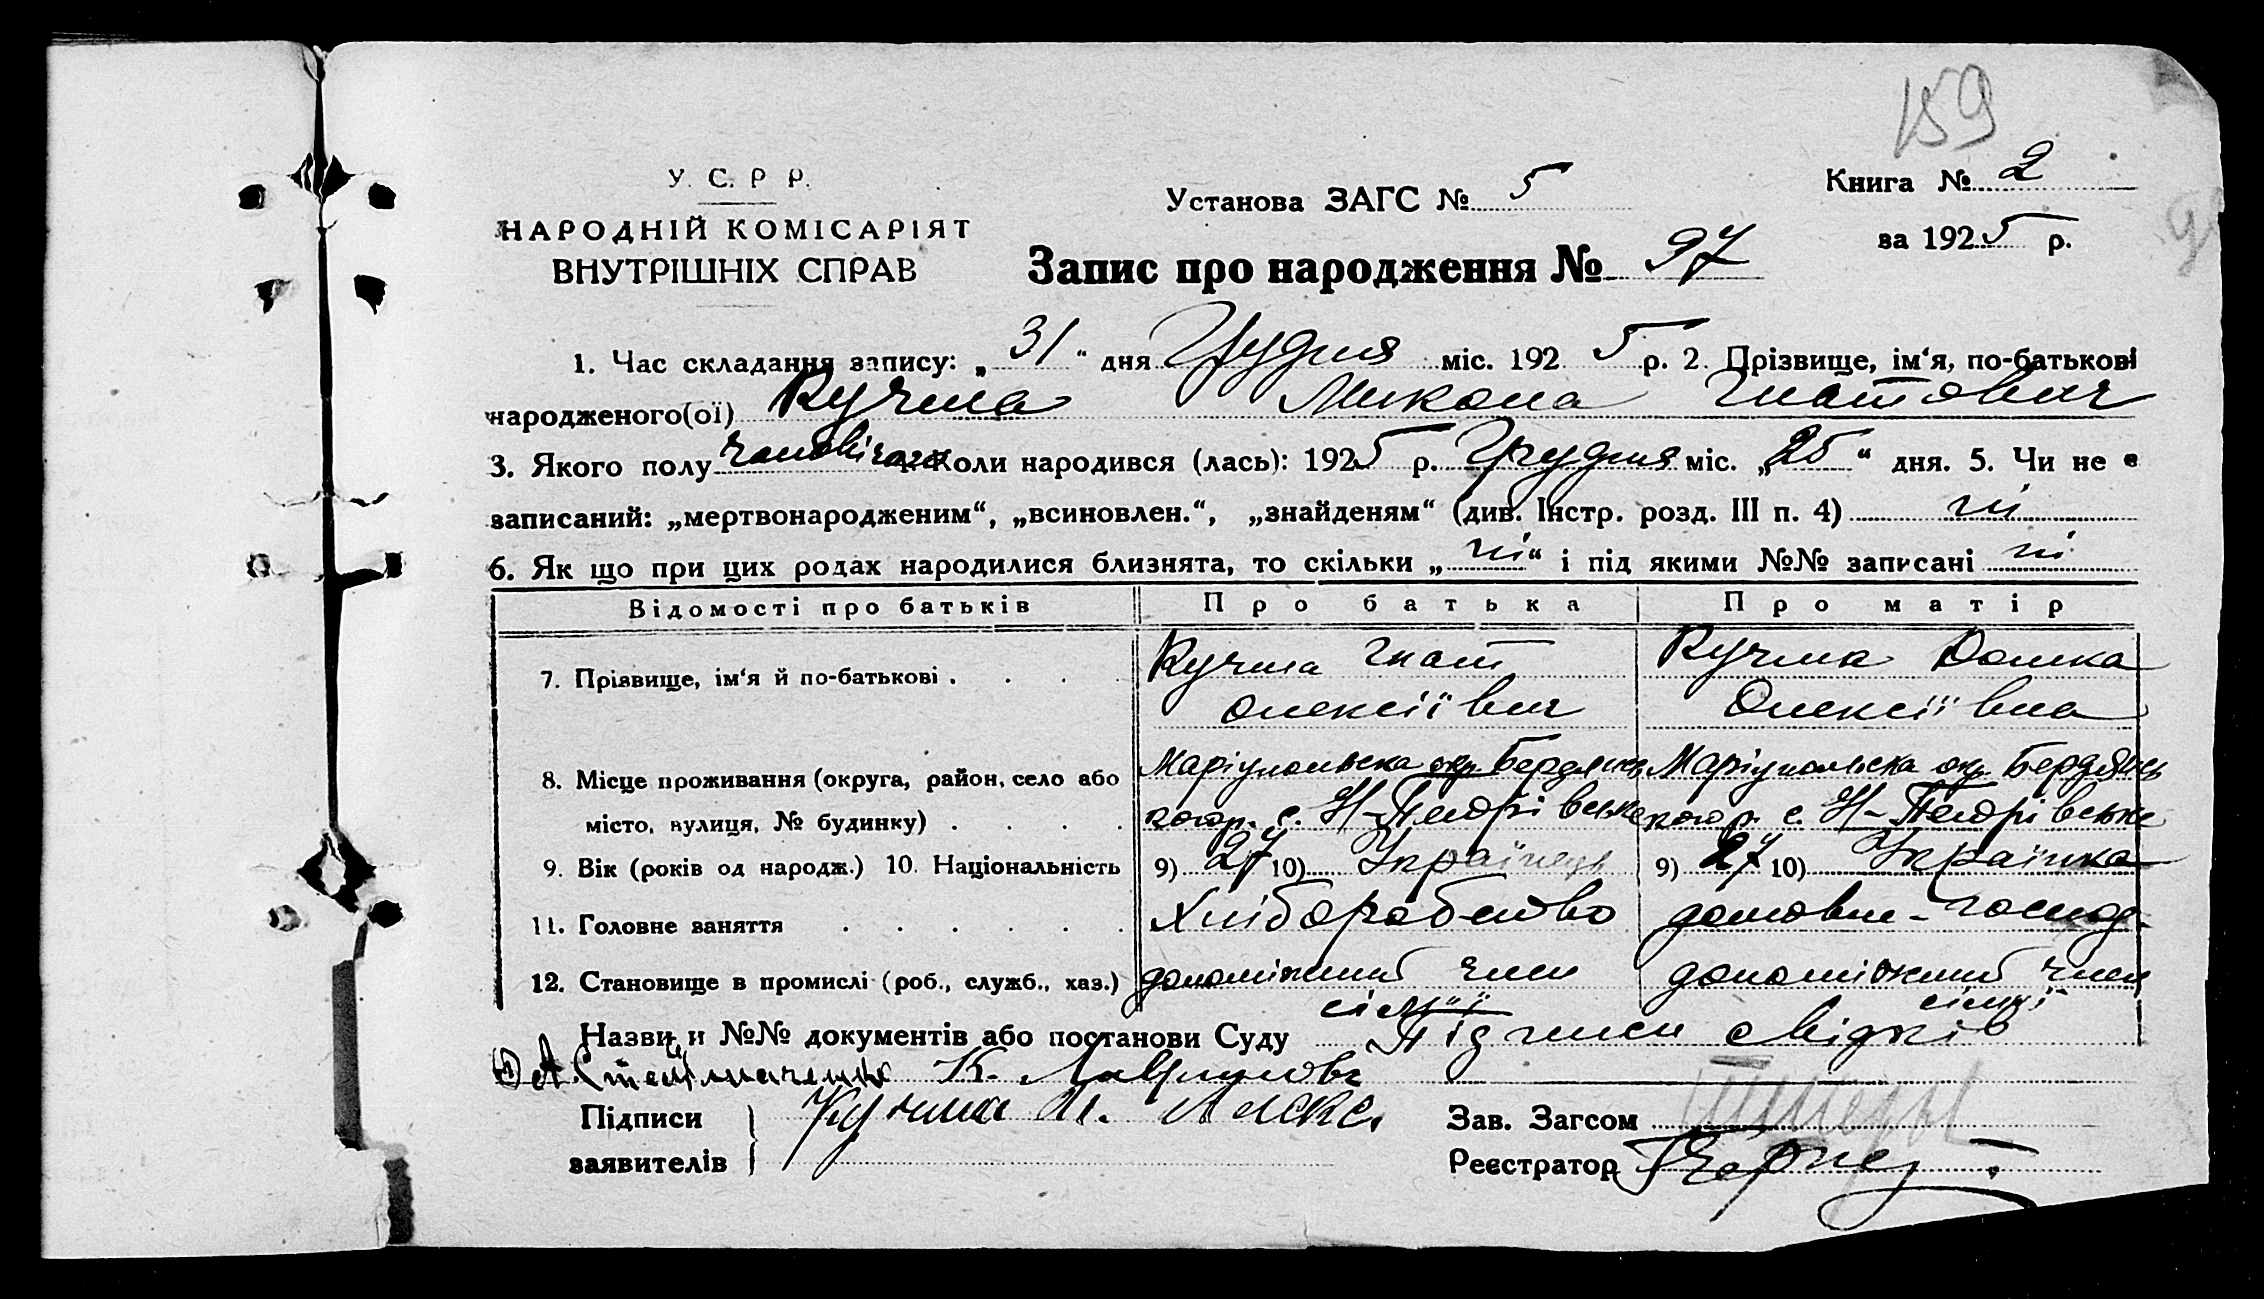 159
У. С. Р Р.
НАРОДНІЙ КОМІСАРІЯТ
ВНУТРІШНІХ СПРАВ
Установа ЗАГС № 5
Книга № 2
за 1925 р.
Запис про народження № 97
1. Час складання запису: „31“ дня Грудня міс. 1925 р. 2. Прізвище, ім‘я, по-батькові
народженого(ої) Кучма Микола Гнатович
3. Якого полу чоловічого Коли народився (лась): 1925 р. Грудня міс. „25“ дня. 5. Чи не є
записаний: „мертвонародженим“, „всиновлен.“, „знайденям“ (див. Інстр. розд. III п. 4) ні
6. Як що при цих родах народилися близнята, то скільки „ні“ і під якими №№ записані ні
Відомості про батьків Про батька Про матір
7. Прізвище, ім‘я й по-батькові . . . . Кучма Гнат Кучма Домка
Олексіївич Олексіївна
8. Місце проживання (округа, район, село або Маріупольска окр. Бердянсь Маріупольска окр. Бердянсь
місто, вулиця, № будинку) . . . . кого р. с. Н-Петрівське кого р. с. Н-Петрівське
9. Вік (років од народж.) 10. Національність 9) 27 10) Українець 9) 27 10) Українка
11. Головне заняття . . . . . . Хліборобство домовн-господ.
12. Становище в промислі (роб., служб., хаз.) допоміжний член допоміжний член
сімїї сімї
Назви и №№ документів або постанови Суду Підписи свідків
К.
Підписи Кучма
заявителів
Зав. Загсом
Реєстратор